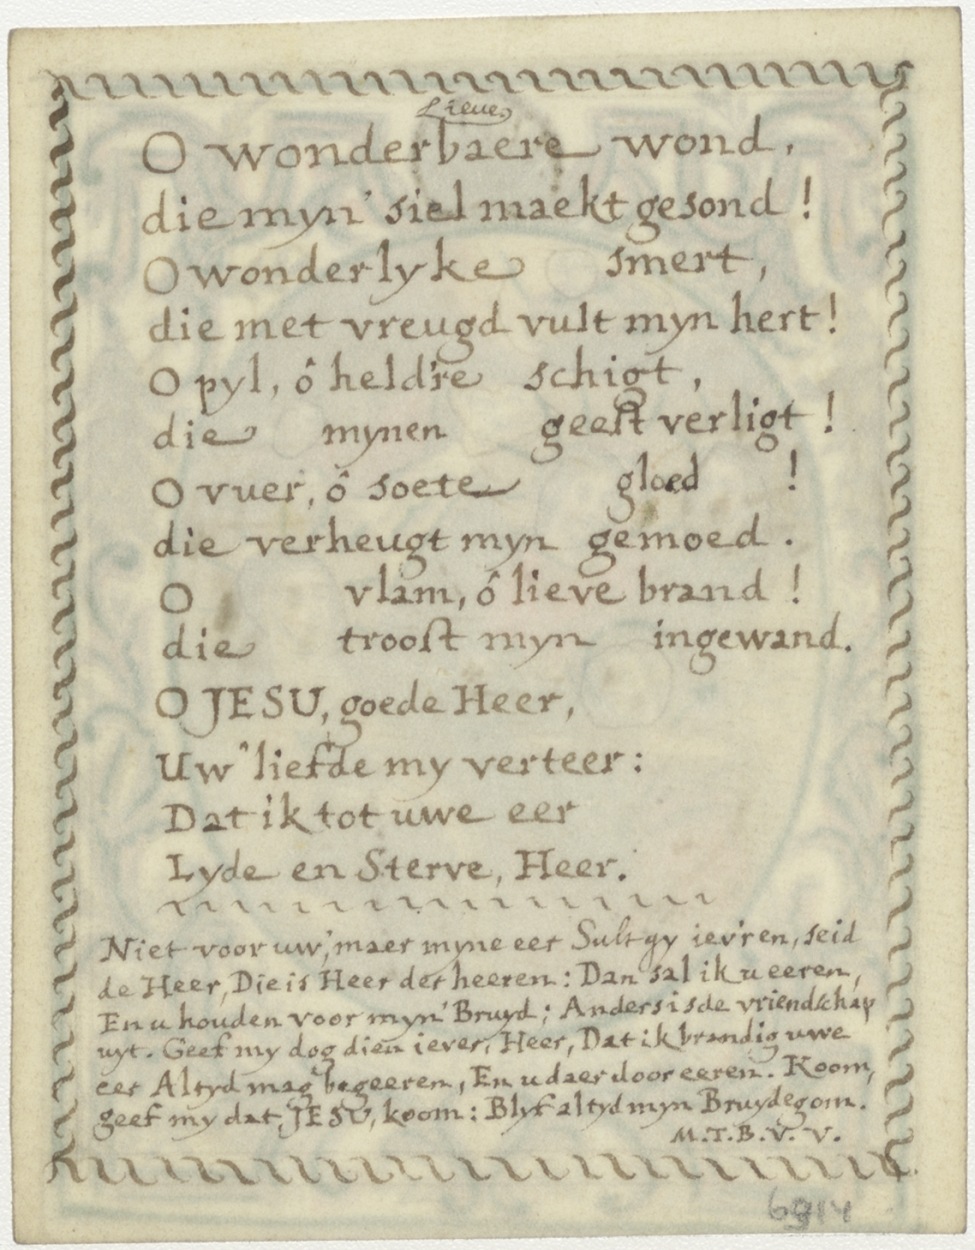 Lieve,
O wonderbaere wond,
die myn' siel maekt gesond!
O wonderlyke smert,
die met vreugd vult myn hert!
O pyl, ô held're schigt,
die mynen geest verligt!
O vuer, ô soete gloed!
die verheugt myn gemoed.
O vlam, ô lieve brand!
die troost myn ingewand.
O JESU, goede Heer,
Uw' liefde my verteer:
Dat ik tot uwe eer
Lyde en Sterve, Heer.
Niet voor uw', maer myne eer Sult gy iev'ren, seid
de Heer, Die is Heer der heeren: Dan sal ik u eeren,
En u houden voor myn' Bruyd; Anders is de vriendschap
uyt. Geef my dog dien iever, Heer, Dat ik brandig uwe
eer Altyd mag begeeren, En u daer door eeren. Koom,
geef my dat, JESU, koom: Blyf altyd myn Bruydegom.
M.T.B.V.V.
6914